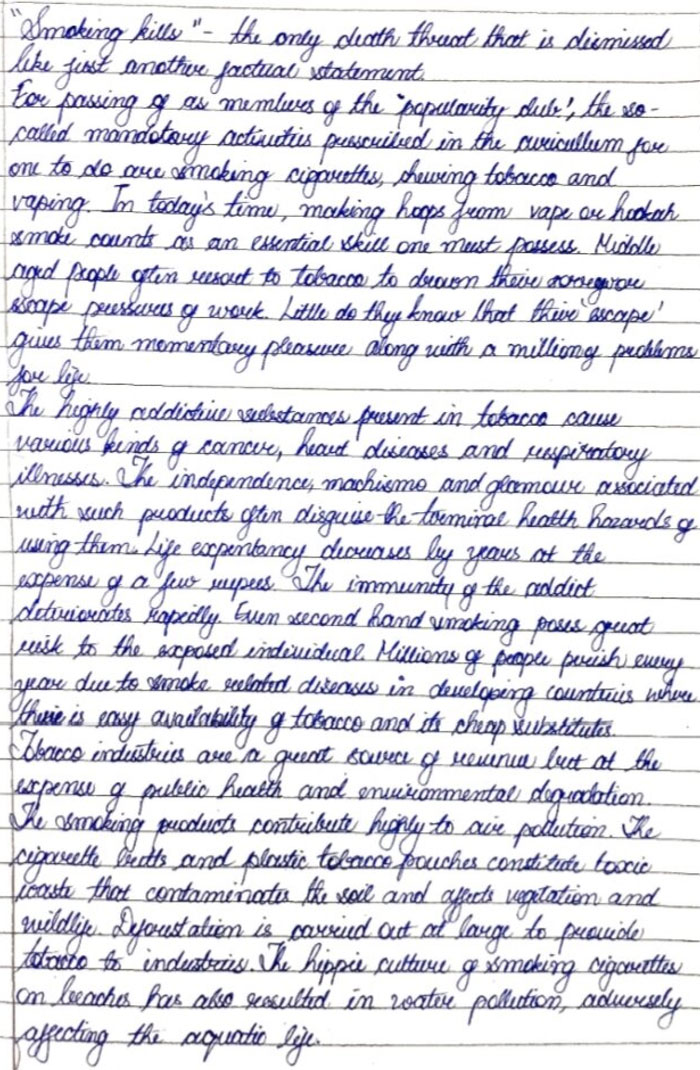 "Smoking kills" - the only death threat that is dismissed
like just another factual statement.
For passing of as members of the 'popularity club', the so-
called mandatory activities prescribed in the curicullum for
one to do are smoking cigarettes, chewing tobacco and
vaping. In today's time, making hoops from vape or hookah
smoke counts as an essential skill one must possess. Middle
aged people often resort to tobacco to drown their sorrows or
escape pressures of work. Little do they know that their 'escape'
gives them momentary pleasure along with a million of problems
for life.
The highly addictive substances present in tobacco cause
various kinds of cancer, heart diseases and respiratory
illnesses. The independence, machismo and glamour associated
with such products often disguise the terminal health hazards of
using them. Life expentancy decreases by years at the
expense of a few rupees. The immunity of the addict
deteriorates rapidly. Even second hand smoking poses great
risk to the exposed individual. Millions of people perish every
year due to smoke related diseases in developing countries where
there is easy availability of tobacco and its cheap substitutes.
Tobacco industries are a great source of revenue but at the
expense of public health and environmental degradation.
The smoking products contribute highly to air pollution. The
cigarette butts and plastic tobacco pouches constitute toxic
waste that contaminates the soil and affects vegetation and
wildlife. Deforestation is carried out at large to provide
tobacco to industries. The hippie culture of smoking cigarettes
on beaches has also resulted in water pollution, adversely
affecting the aquatic life.